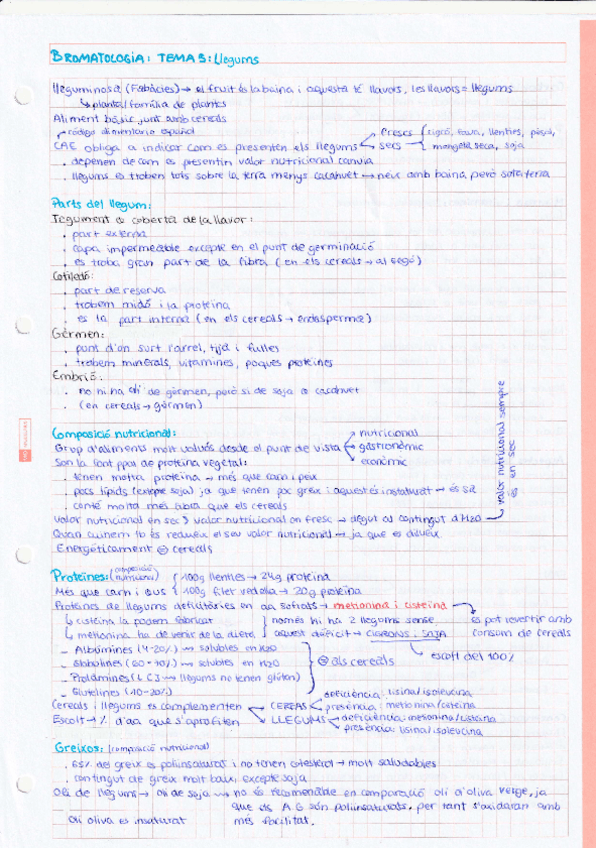 BROMATOLOGIA: TEMA 5: Llegums
lleguminosa (Fabàcies) → el fruit és la baina i aquesta té llavors, les llavors = llegums
↳ planta/família de plantes
Aliment bàsic junt amb cereals
↳ código alimentario español
CAE obliga a indicar com es presenten els llegums
frescs
secs
cigró, fava, llenties, pèsol,
mongeta seca, soja
. depenen de com es presentin valor nutricional canvia
. llegums es troben tots sobre la terra menys cacahuet → neix amb baina però sota terra
Parts del llegum:
Tegument o coberta de la llavor:
. part externa
. capa impermeable excepte en el punt de germinació
. es troba gran part de la fibra (en els cereals → al segó)
Cotiledó:
. part de reserva
. trobem midó i la proteïna
. és la part interna (en els cereals → endosperma)
Gèrmen:
. punt d'on surt l'arrel, tija i fulles
. trobem minerals, vitamines, poques proteïnes
Embrió:
. no hi ha oli de gèrmen, però si de soja o cacahuet
. (en cereals → gèrmen)
Composició nutricional:
Grup d'aliments molt valuós desde el punt de vista
nutricional
gastronòmic
econòmic
Son la font ppal de proteïna vegetal:
. tenen molta proteïna → més que carn i peix
. pocs lípids (excepte soja) ja que tenen poc greix i aquest és insaturat → és sa
. conté molta més fibra que els cereals
valor nutricional en sec > valor nutricional en fresc → degut al contingut d'H2O
valor nutricional sempre
és en sec
Quan cuinem lo és redueix el seu valor nutricional → ja que es dilueix
Energèticament = cereals
Proteïnes: (composició nutricional)
100g llenties → 24g proteïna
Més que carn i ous
100g filet vedella → 20g proteïna
Proteïnes de llegums deficitàries en aa sofrats → metionina i cisteïna
↳ cisteïna la podem fabricar
↳ metionina ha de venir de la dieta
només hi ha 2 llegums sense
aquest dèficit → CIGRONS, SOJA
es pot revertir amb
consum de cereals
escolt del 100%
- Albúmines (4-20%) → solubles en H2O
- Globulines (60-90%) → solubles en H2O
- Prolamines (<3 → llegums no tenen glúten)
- Glutelines (10-20%)
= als cereals
Cereals i llegums es complementen
Escolt → % d'aa que s'aprofiten
CEREALS
deficiència: lisina/isoleucina
presència: metionina/cisteïna
LLEGUMS
deficiència: metionina/cisteïna
presència: lisina/isoleucina
Greixos: (composició nutricional)
. 65% del greix es poliinsaturat i no tenen colesterol → molt saludables
. contingut de greix molt baix, excepte soja
Oli de llegums → oli de soja → no és recomenable en comparació oli d'oliva verge, ja
que els AG són poliinsaturats, per tant s'oxidaran amb
més facilitat.
Oli oliva es insaturat